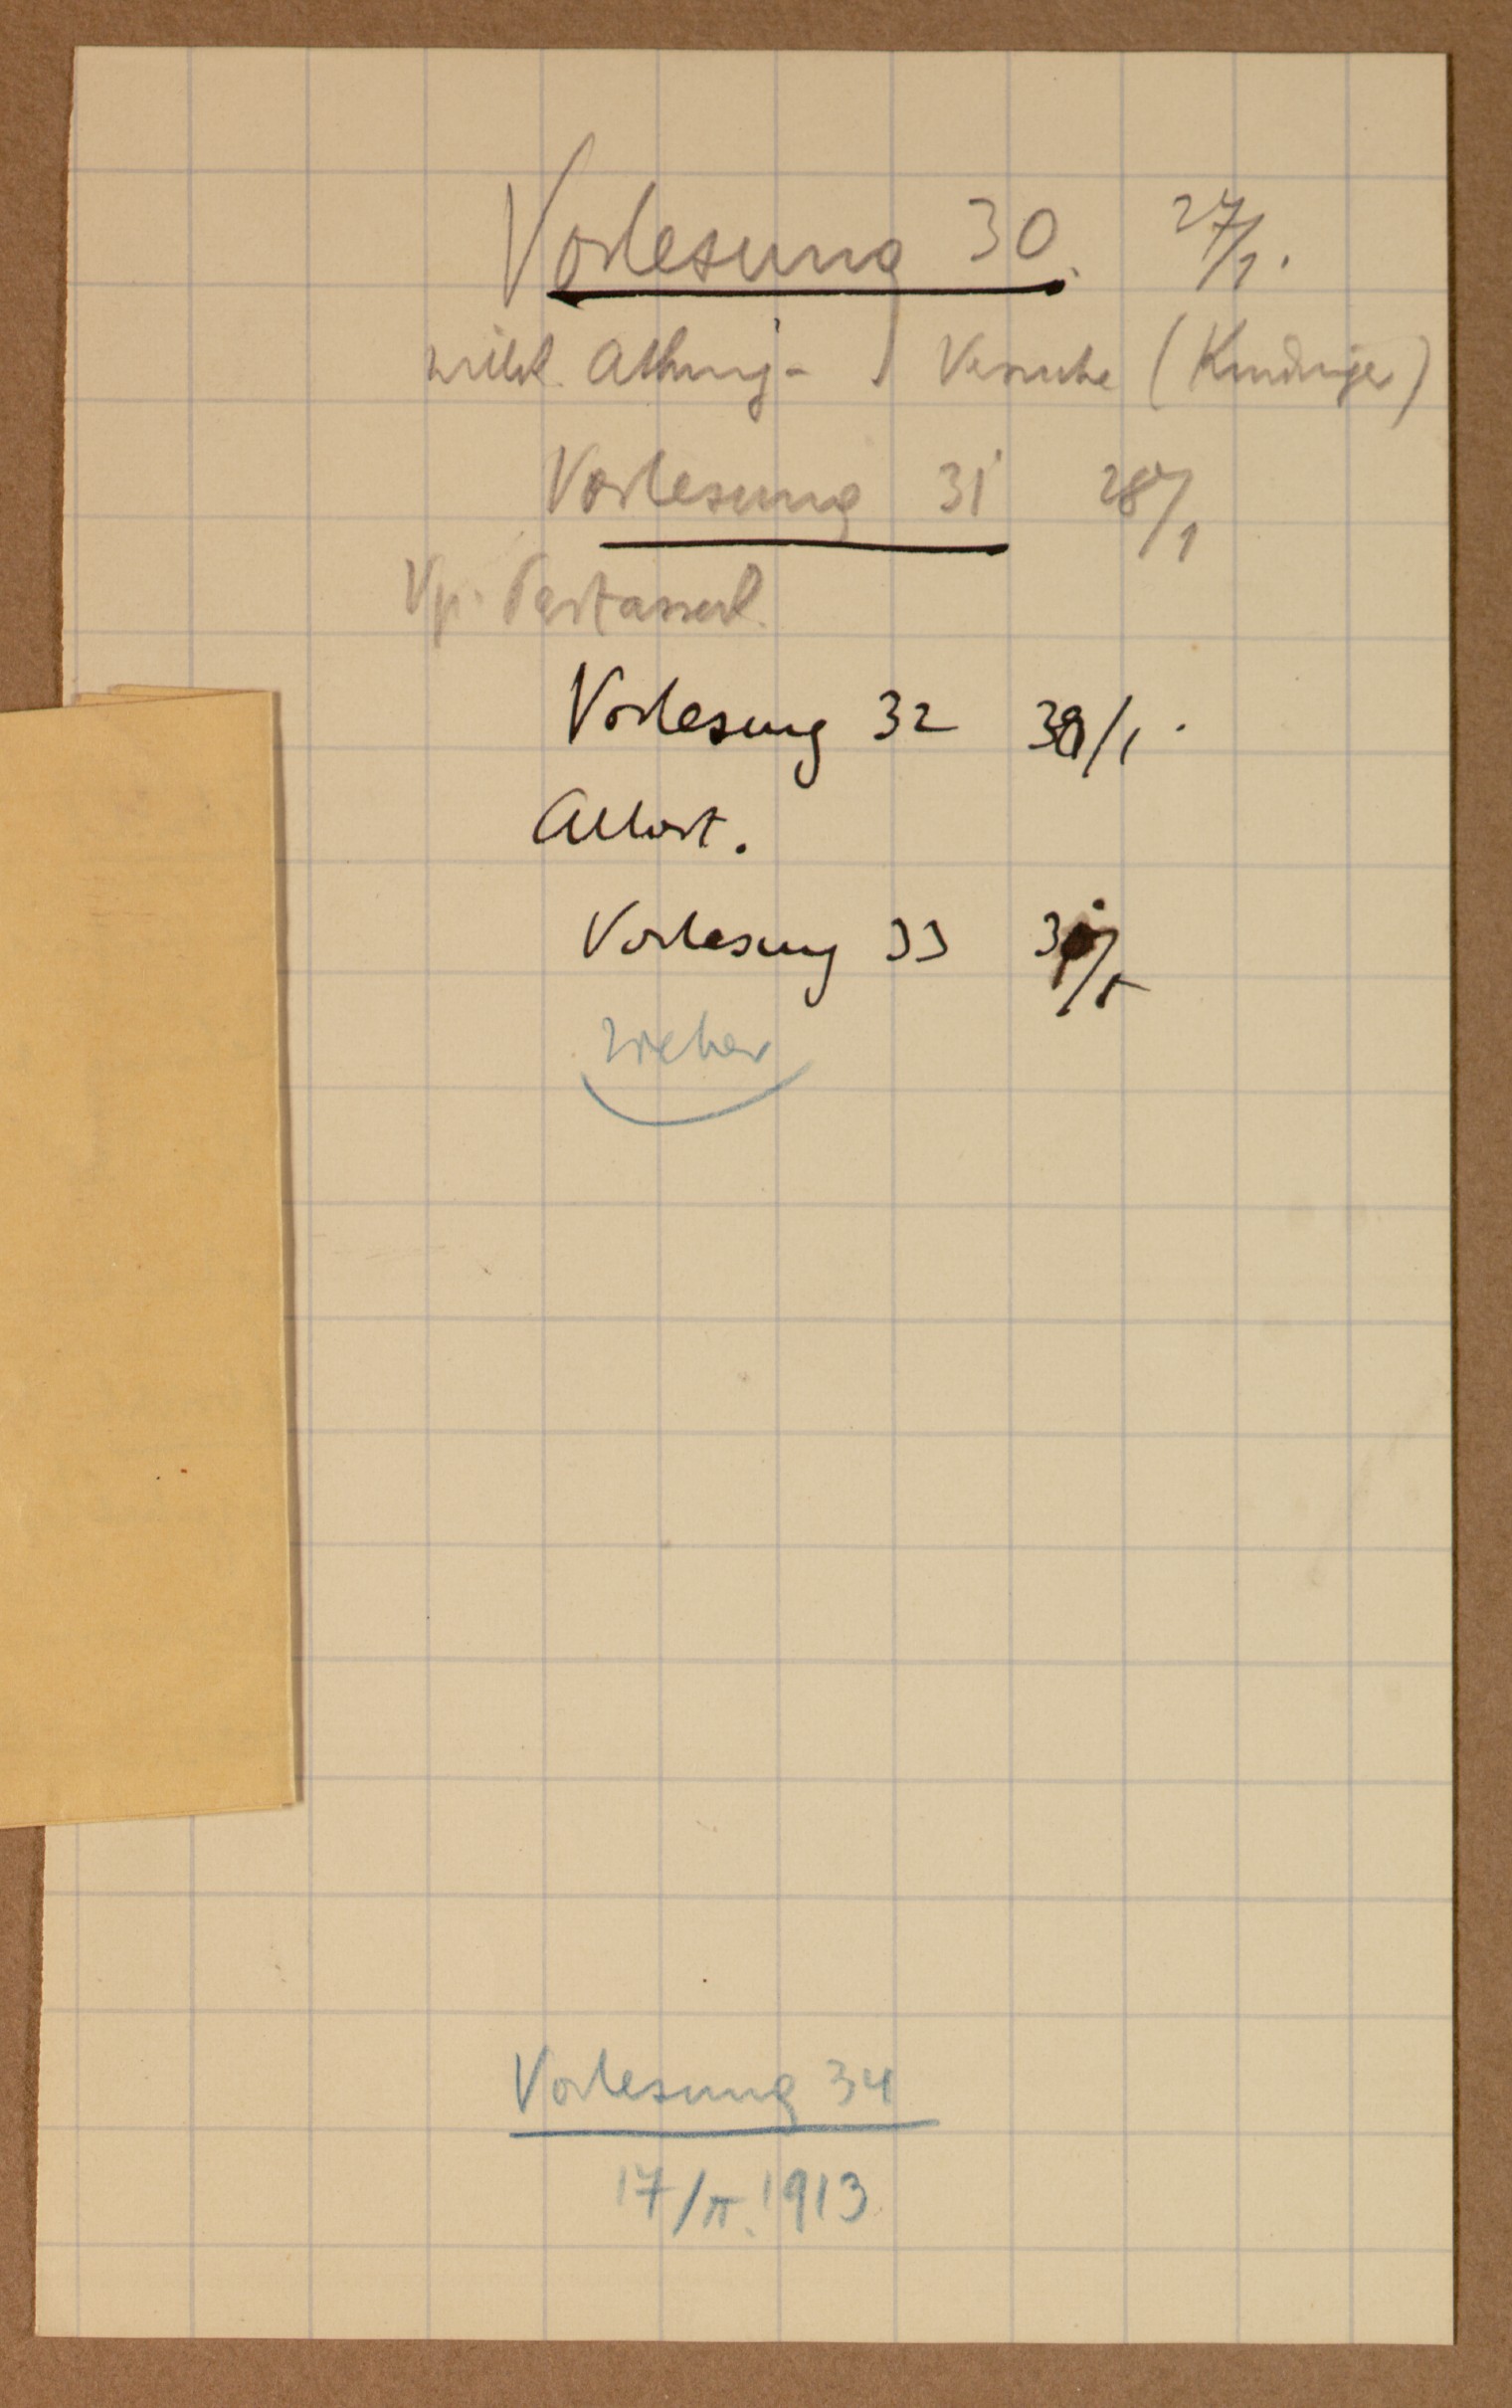 Vorlesung 30. 27/1.
willk. Athmg- Versuche (Kundinger)
Vorlesung 31 28/1
Vp.
Vorlesung 32 30/1.
Vorlesung 33 31/1
Vorlesung 34
17/II. 1913